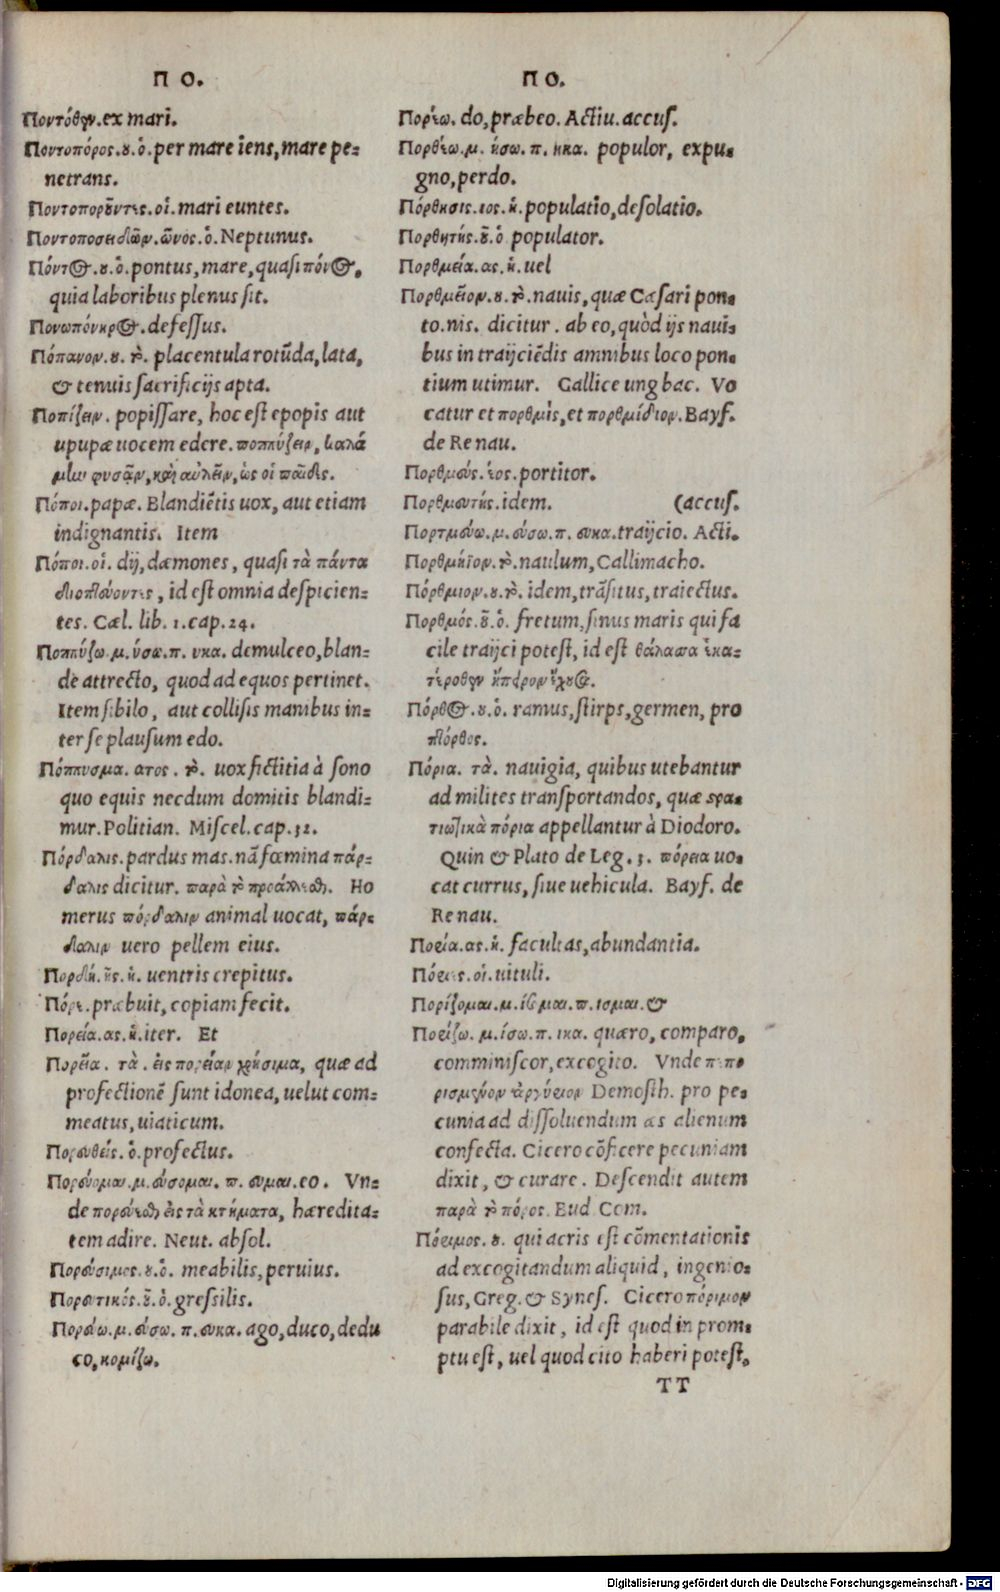 Π Ο.
Ποντόθεν. ex mari.
Ποντοπόρος. ου. ὁ. per mare iens, mare pe-
netrans.
Ποντοποροῦντες. οἱ. mari euntes.
Ποντοποσειδῶν. ῶνος. ὁ. Neptunus.
Πόντος. ου. ὁ. pontus, mare, quasi πόνος,
quia laboribus plenus sit.
Πονωπόνηρος. defessus.
Πόπανον. ου. τὸ. placentula rotũda, lata,
& tenuis sacrificijs apta.
Ποπίζειν. popissare, hoc est epopis aut
upupæ uocem edere. ποππύζειν, καλά
μῳ φυσᾷν, καὶ αὐλεῖν, ὡς οἱ παῖδες.
Πόποι. papæ. Blandiẽtis uox, aut etiam
indignantis. Item
Πόποι. οἱ. dij, dæmones, quasi τὰ πάντα
διοπτεύοντες, id est omnia despicien-
tes. Cæl. lib. 1. cap. 24.
Ποππύζω. μ. ύσω. π. υκα. demulceo, blan-
de attrecto, quod ad equos pertinet.
Item sibilo, aut collisis manibus in-
ter se plausum edo.
Πόππυσμα. ατος. τὸ. uox fictitia à sono
quo equis necdum domitis blandi-
mur. Politian. Miscel. cap. 32.
Πόρδαλις. pardus mas. nã fœmina πάρ-
δαλις dicitur. παρὰ τὸ προάλλεσθαι. Ho
merus πόρδαλιν animal uocat, πάρ-
δαλιν uero pellem eius.
Πορδή. ῆς. ἡ. uentris crepitus.
Πόρε. præbuit, copiam fecit.
Πορεία. ας. ἡ. iter. Et
Πορεῖα. τὰ. εἰς πορείαν χρήσιμα, quæ ad
profectionẽ sunt idonea, uelut com-
meatus, uiaticum.
Πορευθείς. ὁ. profectus.
Πορεύομαι. μ. εύσομαι. π. ευμαι. eo. Vn-
de πορεύεσθαι εἰς τὰ κτήματα, hæredita-
tem adire. Neut. absol.
Πορεύσιμος. ου. ὁ. meabilis, peruius.
Πορευτικός. οῦ. ὁ. gressilis.
Πορεύω. μ. εύσω. π. ευκα. ago, duco, dedu
co, κομίζω.
Π Ο.
Πορέω. do, præbeo. Actiu. accus.
Πορθέω. μ. ήσω. π. ηκα. populor, expu-
gno, perdo.
Πόρθησις. ιος. ἡ. populatio, desolatio.
Πορθητής. οῦ. ὁ. populator.
Πορθμεία. ας. ἡ. uel
Πορθμεῖον. ου. τὸ. nauis, quæ Cæsari pon-
to. nis. dicitur. ab eo, quòd ijs naui-
bus in traijciẽdis amnibus loco pon-
tium utimur. Gallice ung bac. Vo
catur et πορθμὶς, et πορθμίδιον. Bayf.
de Re nau.
Πορθμεύς. έος. portitor.
Πορθμευτής. idem. (accus.
Πορτμεύω. μ. εύσω. π. ευκα. traijcio. Acti.
Πορθμήϊον. τὸ. naulum, Callimacho.
Πόρθμιον. ου. τὸ. idem, trãsitus, traiectus.
Πορθμός. οῦ. ὁ. fretum, sinus maris qui fa
cile traijci potest, id est θάλασσα ἑκα-
τέρωθεν ἤπειρον ἔχουσα.
Πόρθος. ου. ὁ. ramus, stirps, germen, pro
πτόρθος.
Πόρια. τὰ. nauigia, quibus utebantur
ad milites transportandos, quæ στρα-
τιωτικὰ πόρια appellantur à Diodoro.
Quin & Plato de Leg. 3. πόρεια uo-
cat currus, siue uehicula. Bayf. de
Re nau.
Πορία. ας. ἡ. facultas, abundantia.
Πόριες. οἱ. uituli.
Πορίζομαι. μ. ίσομαι. π. ισμαι. &
Πορίζω. μ. ίσω. π. ικα. quæro, comparo,
comminiscor, excogito. Vnde πεπο
ρισμένον ἀργύριον Demosth. pro pe-
cunia ad dissoluendum æs alienum
confecta. Cicero cõficere pecuniam
dixit, & curare. Descendit autem
παρὰ τὸ πόρος. Eud. Com.
Πόριμος. ου. qui acris est cõmentationis
ad excogitandum aliquid, ingenio-
sus, Greg. & Synes. Cicero πόριμον
parabile dixit, id est quod in prom-
ptu est, uel quod cito haberi potest.
TT
Digitalisierung gefördert durch die Deutsche Forschungsgemeinschaft - DFG